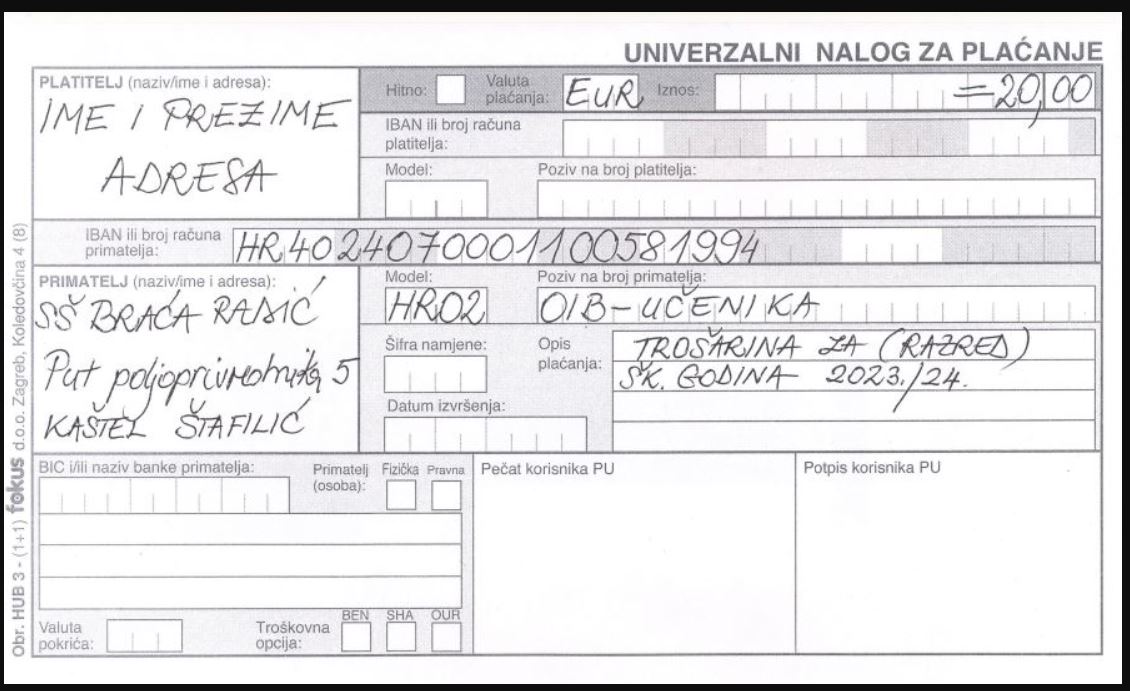 UNIVERZALNI NALOG ZA PLAĆANJE
PLATITELJ (naziv/ime i adresa):
IME I PREZIME
ADRESA
Hitno:
Valuta plaćanja: EUR
Iznos: =20,00
IBAN ili broj računa platitelja:
Model:
Poziv na broj platitelja:
IBAN ili broj računa primatelja: HR4024070001100581994
PRIMATELJ (naziv/ime i adresa):
SŠ BRAĆA RADIĆ
Put poljoprivrednika 5
KAŠTEL ŠTAFILIĆ
Model: HR02
Poziv na broj primatelja: OIB-UČENIKA
Šifra namjene:
Datum izvršenja:
Opis plaćanja: TROŠARINA ZA (RAZRED)
ŠK. GODINA 2023./24.
BIC i/ili naziv banke primatelja:
Primatelj (osoba): Fizička Pravna
Pečat korisnika PU
Potpis korisnika PU
Valuta pokrića:
Troškovna opcija: BEN SHA OUR
Obr. HUB 3 - (1+1) fokus d.o.o. Zagreb, Koledovčina 4 (8)